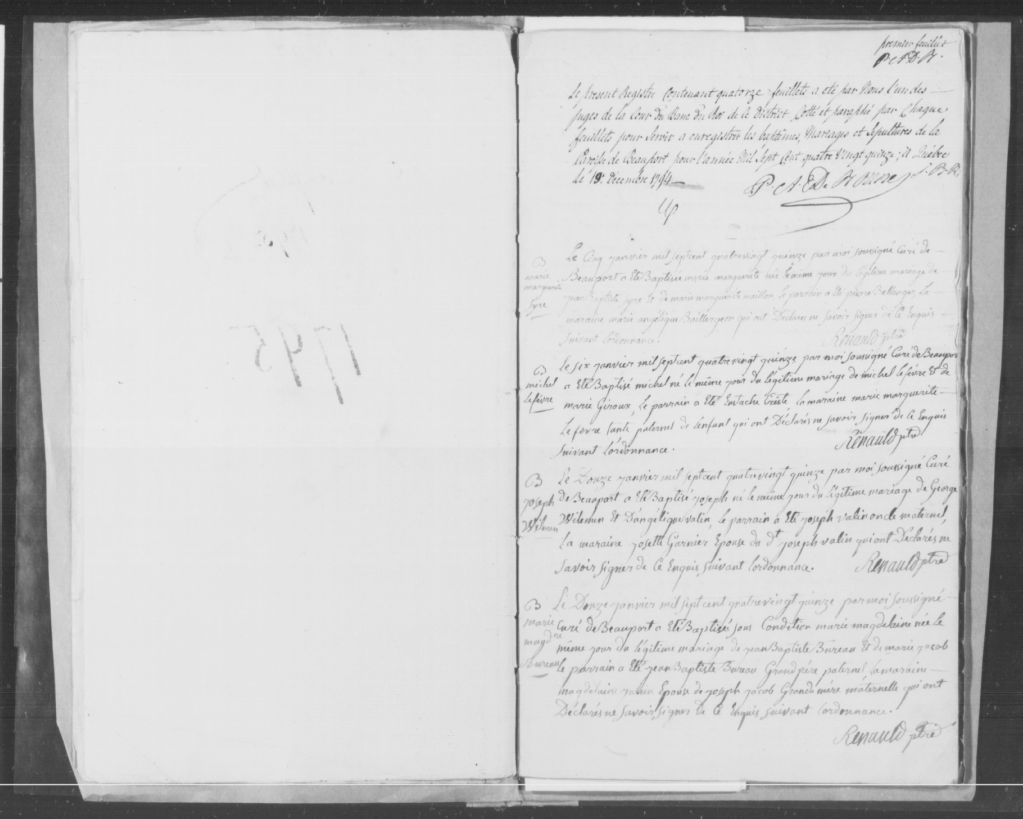 premier feuillet
P. A. D. B.
Le present Registre Contenant quatorze feuillets a eté par Nous l'un des
juges de la Cour du Banc du Roi de ce District Cotté et paraphé par Chaque
feuillets pour servir a enregistrer les baptêmes, Mariages et Sepultures de la
Paroisse de Beauport pour l'année Mil Sept Cent quatre Vingt quinze; à Québec
le 19e. decembre 1794
P. A. De Bonne J. B. R.
Le Cinq janvier mil septcent quatrevingt quinze par moi soussigné Curé de
B
marie
marguerite
Beauport a eté Baptisée marie marguerite née le même jour du légitime mariage de
jean Baptiste et de marie marguerite maillou le parrain a eté pierre Bellanger La
maraine marie angelique qui ont Déclarés ne savoir signer de Ce Enquis
suivant l'ordonnance.
Renauld ptre
Le six janvier mil septcent quatrevingt quinze par moi soussigné Curé de Beauport
B
michel
lefevre
a eté Baptisé michel né le même jour du légitime mariage de michel lefevre Et de
marie Giroux, le parrain a eté Eustache la maraine marie marguerite
Lefevre tante paternel de l'enfant qui ont Déclarés ne savoir signer de Ce Enquis
suivant l'ordonnance.
Renauld ptre
B
joseph
Wilemun
Le Douze janvier mil septcent quatrevingt quinze par moi soussigné Curé
de Beauport a eté Baptisé joseph né le même jour du légitime mariage de George
Wilemun Et D'angélique valin, le parrain a eté joseph valin oncle maternel,
La maraine josette Garnier Epouse du dt joseph valin qui ont Déclarés ne
savoir signer de Ce Enquis suivant l'ordonnance.
Renauld ptre
B
marie
magdne
Bureau
Le Douze janvier mil septcent quatrevingt quinze par moi soussigné
Curé de Beauport a eté Baptisée sous Condition marie magdelaine née le
même jour du légitime mariage de jean Baptiste Bureau Et de marie jacob
le parrain a eté jean Baptiste Bureau Grand pére paternel la maraine
magdelaine Epouse de joseph jacob Grande mère maternelle qui ont
Déclarés ne savoir signer de Ce Enquis suivant l'ordonnance.
Renauld ptre
1795